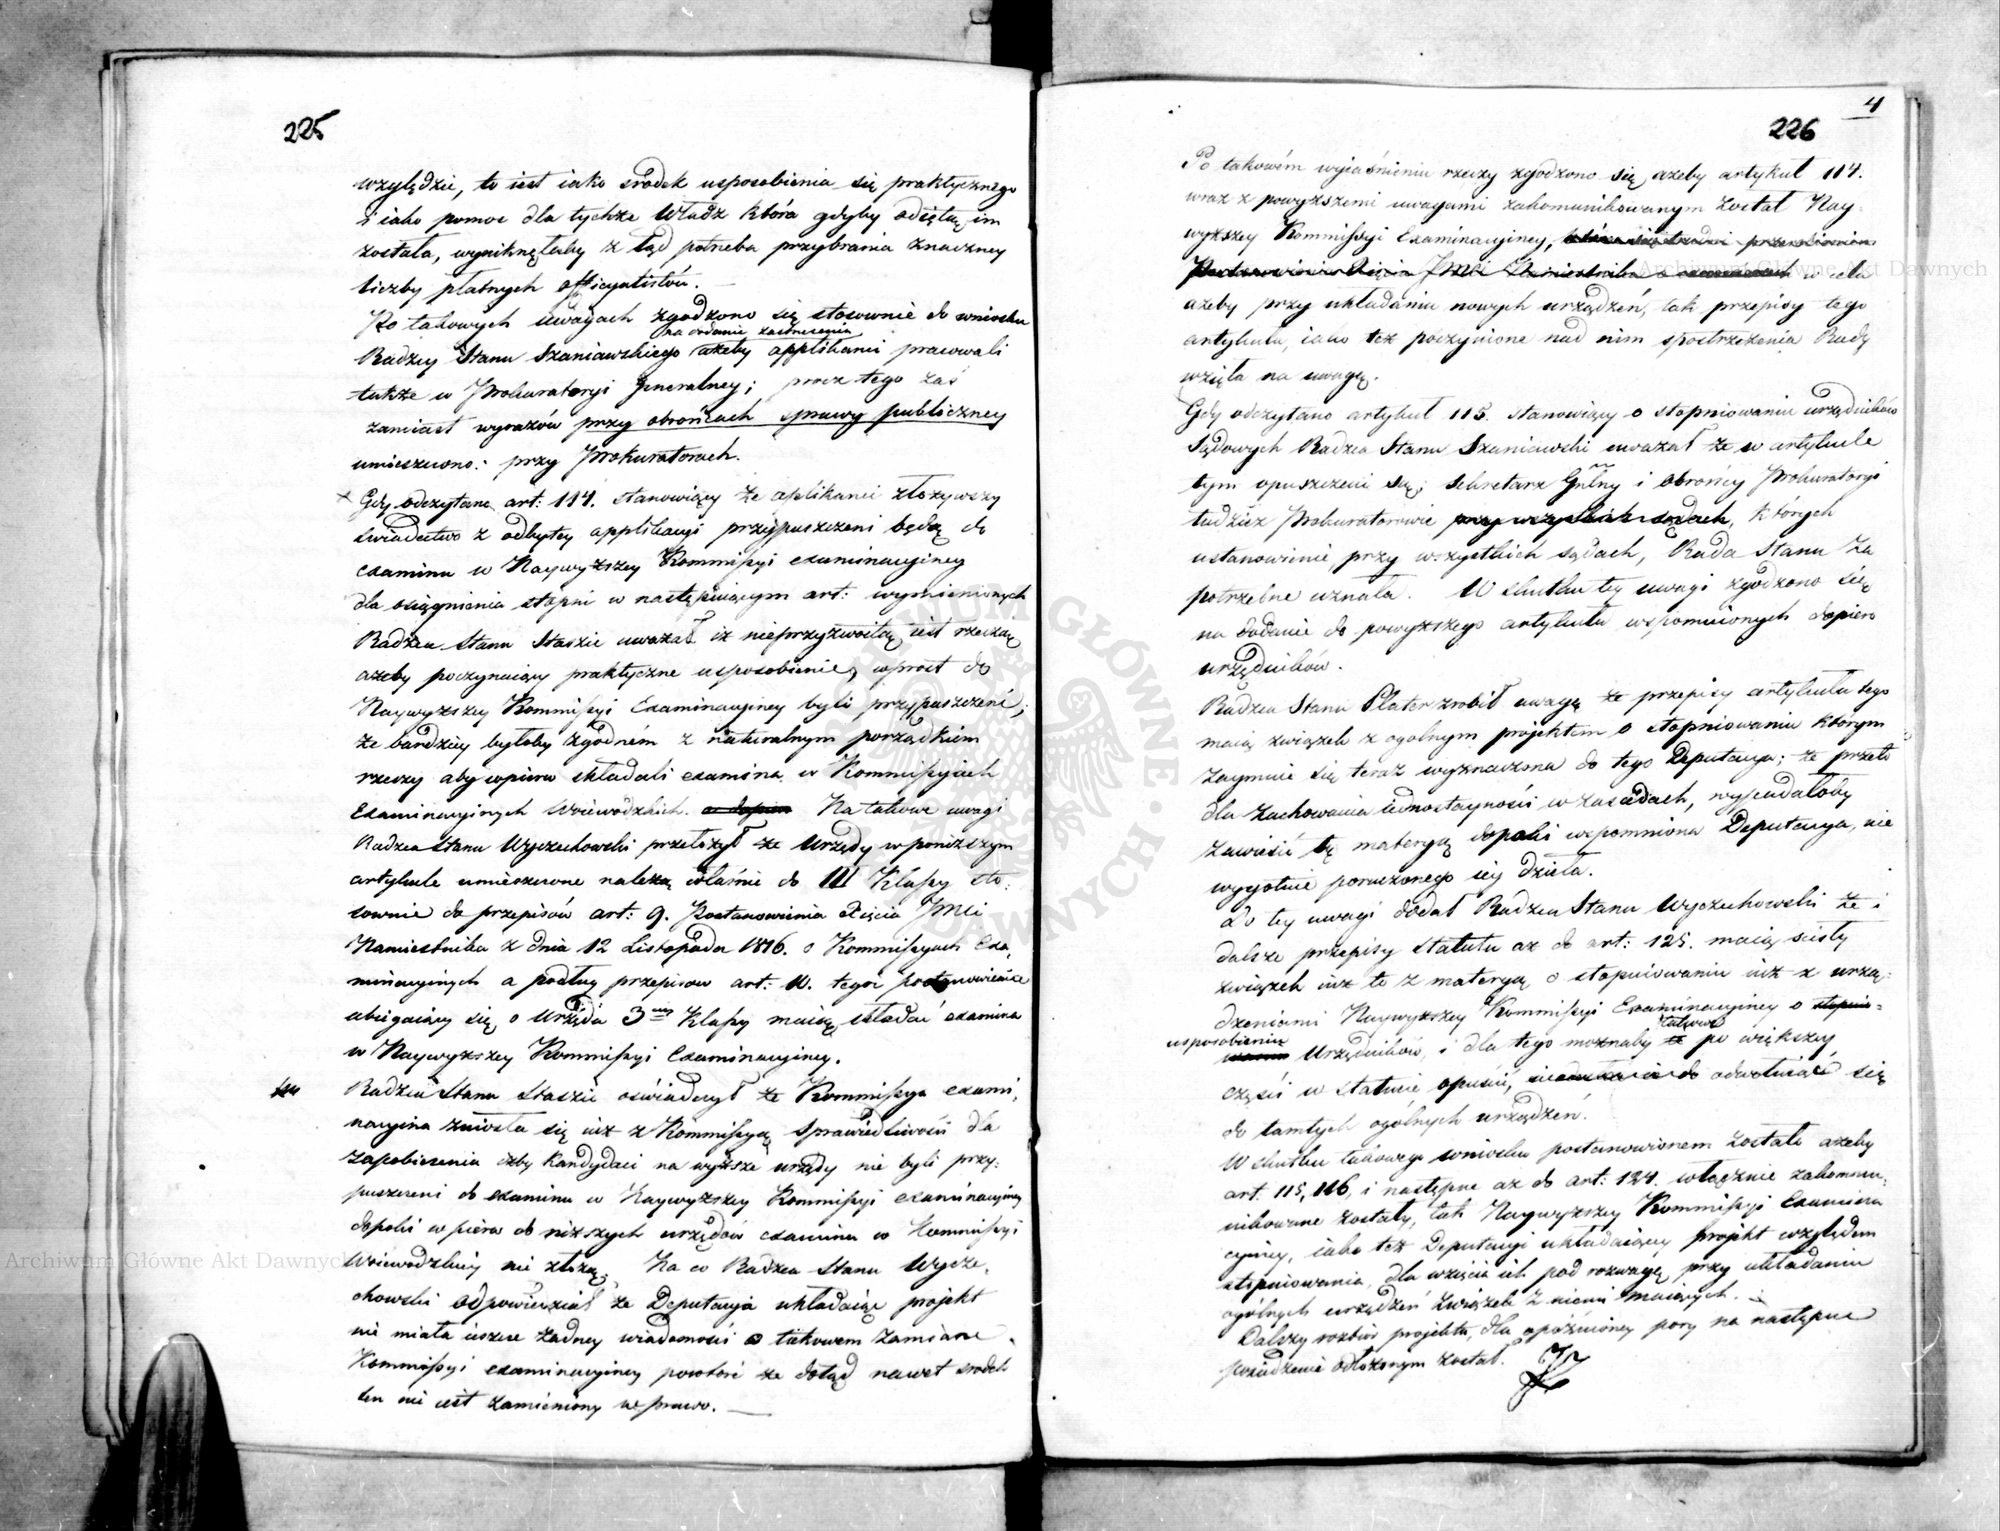 225
względzie, to iest iako srodek usposobienia się praktycznego
i iako pomoc dla tychże Władz która gdyby odiętą im
została, wyniknęłaby z tąd potrzeba przybrania znaczney
liczby płatnych officyalistów.
Po takowych uwagach zgodzono się stosownie do wniosku
na dodanie zastrzeżenia
Radzcy Stanu Szaniawskiego ażeby applikanci pracowali
także w Prokuratoryi Generalney; procz tego zaś
zamiast wyrazów przy obrońcach sprawy publiczney
umieszczono: przy Prokuratorach.
Gdy odczytano art: 114. stanowiący że aplikanci złożywszy
świadectwo z odbytey applikacyi przypuszczeni będą do
examinu w Naywyższey Kommissyi examinacyiney
dla osiągnienia stopni w następuiącym art: wymienionych
Radzca Stanu Staszic uważał iż nieprzyzwoitą iest rzeczą
ażeby poczynaiący praktyczne usposobienie, wprost do
Naywyższey Kommissyi Examinacyiney byli przypuszczeni;
że bardziey byłoby zgodném z naturalnym porządkiem
rzeczy aby wpierw składali examina w Kommissyiach
Examinacyinych Woiewodzkich. a dopiero Na takowe uwagi
Radzca Stanu Wyczechowski przełożył że Urzędy w poniższym
artykule umieszczone należą właśnie do III Klassy sto-
sownie do przepisów art: 9. Postanowienia Xięcia JMci
Namiestnika z dnia 12 Listopada 1816. o Kommissyach Exa-
minacyinych a podług przepisow art: 11. tegoż postanowienia
ubiegaiący się o Urzęda 3ciey Klassy maią składać examina
w Naywyższey Kommissyi Examinacyiney.
Radzca Stanu Staszic oświadczył że Kommissya exami-
nacyina zniosła się iuż z Kommissyą Sprawiedliwości dla
zapobieżenia iżby Kandydaci na wyższe urzędy nie byli przy-
puszczeni do examinu w Naywyższey Kommissyi examinacyiney
dopoki wpierw do niższych urzędów examinu w Kommissyi
Woiewodzkiey nie złożą. Na co Radzca Stanu Wycze-
chowski odpowiedział że Deputacya układaiąca projekt
nie miała ieszcze żadney wiadomości o takowem zamiarze
Kommissyi examinacyiney powtore że dotąd nawet srodek
ten nie iest zamieniony w prawo.
4
226
Po takowém wyjaśnieniu rzeczy zgodzono się ażeby artykuł 114.
wraz z powyższemi uwagami zakomunikowanym został Nay-
wyższey Kommissyi Examinacyiney,
Postanowienia Xięcia JMci Namiestnika w celu
ażeby przy układaniu nowych urządzeń, tak przepisy tego
artykułu, iako też poczynione nad nim spostrzeżenia Rady
wzięła na uwagę.
Gdy odczytano artykuł 115. stanowiący o stopniowaniu urzędników
Sądowych Radzca Stanu Szaniawski uważał że w artykule
tym opuszczeni są; Sekretarz Gnlny i Obrońcy Prokuratoryi
tudzież Prokuratorowie przy wszystkich sądach, których
ustanowienie przy wszystkich sądach, Rada Stanu za
potrzebne uznała. W skutku tey uwagi zgodzono się
na dodanie do powyższego artykułu wspomnionych dopiero
urzędników.
Radzca Stanu Plater zrobił uwagę że przepisy artykułu tego
maią związek z ogolnym projektem o stopniowaniu ktorym
zaymuie się teraz wyznaczona do tego Deputacya; że przeto
dla zachowania iednostayności w zasadach, wypadałoby
zawiesić tę materyą dopoki wspomniona Deputacya, nie
wygotuie poruczonego iey dzieła.
Do tey uwagi dodał Radzca Stanu Wyczechowski że i
dalsze przepisy Statutu az do art: 125. maią ścisły
związek iuż to z materyą o stopniowaniu iuż z urzą-
dzeniami Naywyższey Kommissyi Examinacyiney o stopnio-
usposobieniu waniu Urzędników, i dla tego możnaby te takowe po większey
części w Statucie opuścić, odwołuiąc się
do tamtych ogólnych urządzeń.
W skutku takowego wniosku postanowionem zostało ażeby
art. 115, 116, i następne aż do art: 124. włącznie zakommu-
nikowane zostały, tak Naywyższey Kommissyi Examina-
cyiney, iako też Deputacyi układaiącey projekt względem
stopniowania, dla wzięcia ich pod rozwagę przy układaniu
ogólnych urządzeń związek z niemi maiących.
Dalszy rozbiór projektu, dla opóźnioney pory na następne
posiedzenie odłożonym został.